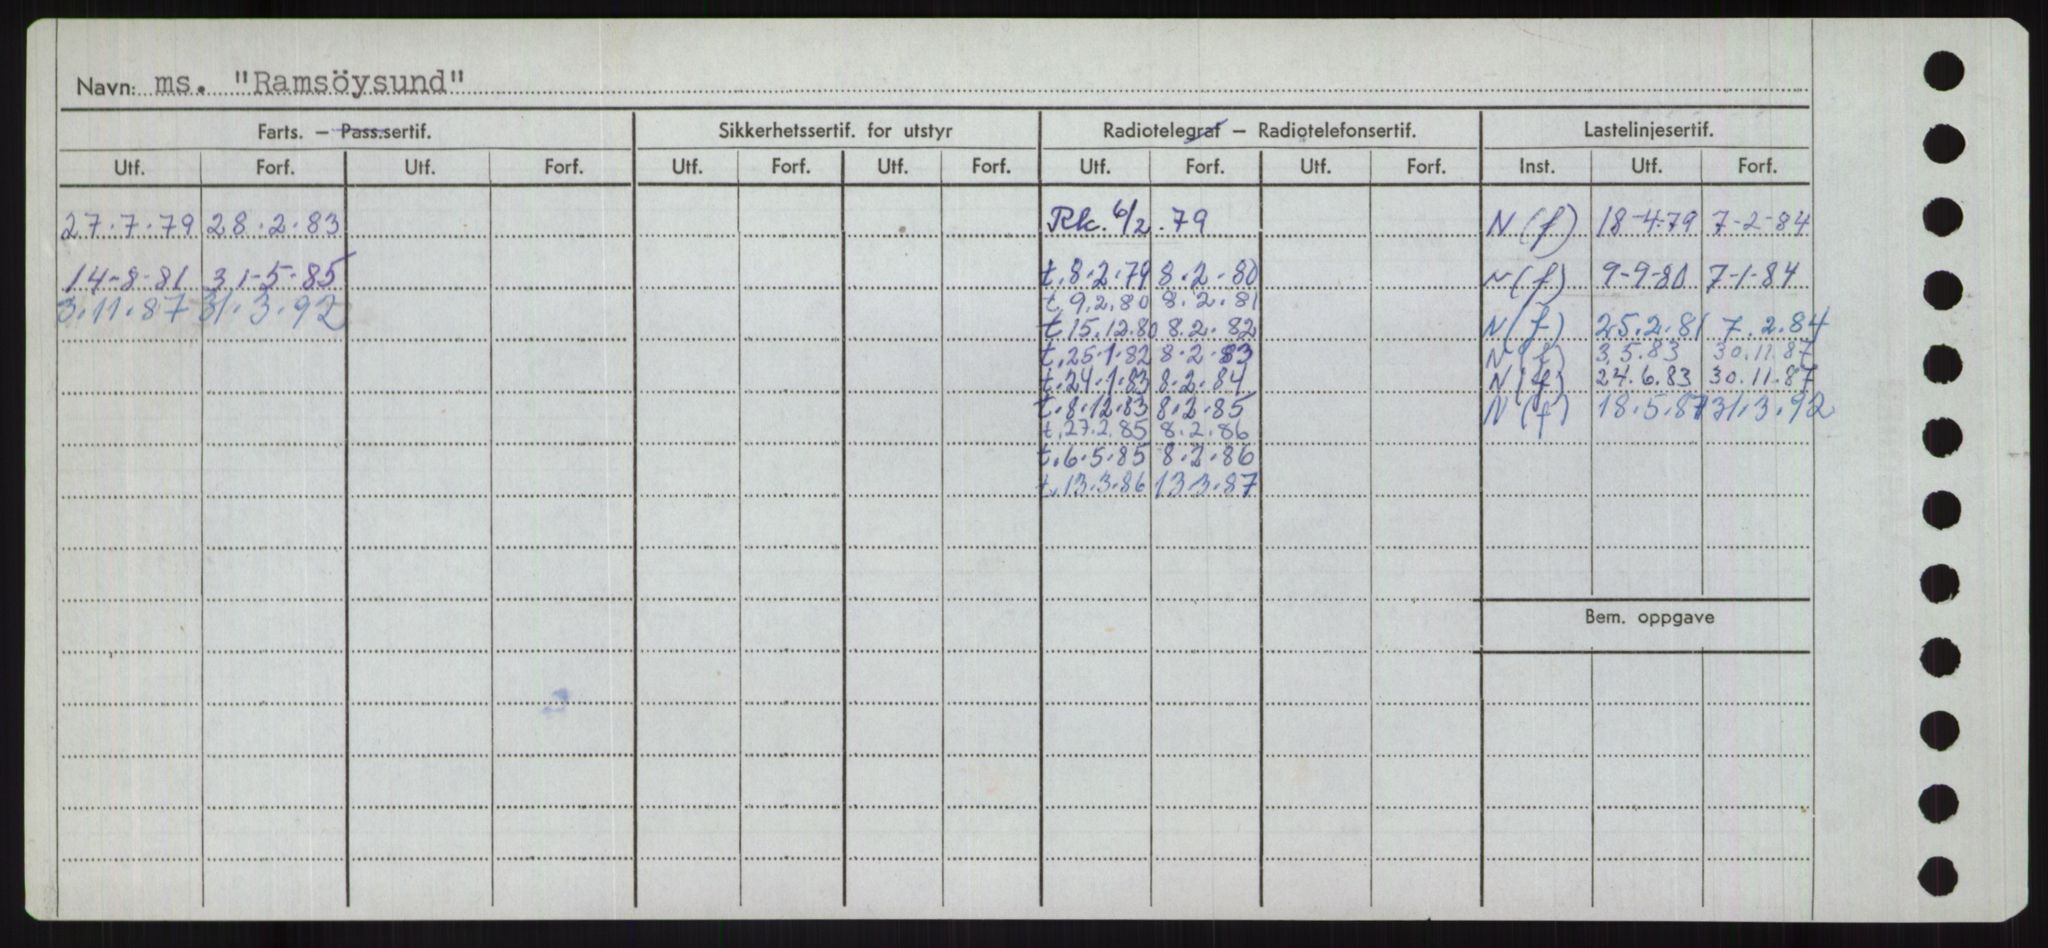 Navn: ms. "Ramsöysund"
Farts. – Pass.sertif. Sikkerhetssertif. for utstyr Radiotelegraf – Radiotelefonsertif. Lastelinjesertif.
Utf. Forf. Utf. Forf. Utf. Forf. Utf. Forf. Utf. Forf. Utf. Forf. Inst. Utf. Forf.
27.7.79 28.2.83 Rk. 6/2.79 N(f) 18-4-79 7-2-84
14-8-81 31-5-85 t.8.2.79 8.2.80 N(f) 9-9-80 7-1-84
3.11.87 31.3.92 t.9.2.80 8.2.81
t.15.12.80 8.2.82 N(f) 25.2.81 7.2.84
t.25.1.82 8.2.83 N(f) 3.5.83 30.11.87
t.24.1.83 8.2.84 N(f) 24.6.83 30.11.87
t.8.12.83 8.2.85 N(f) 18.5.87 31.3.92
t.27.2.85 8.2.86
t.6.5.85 8.2.86
t.13.3.86 13.3.87
Bem. oppgave